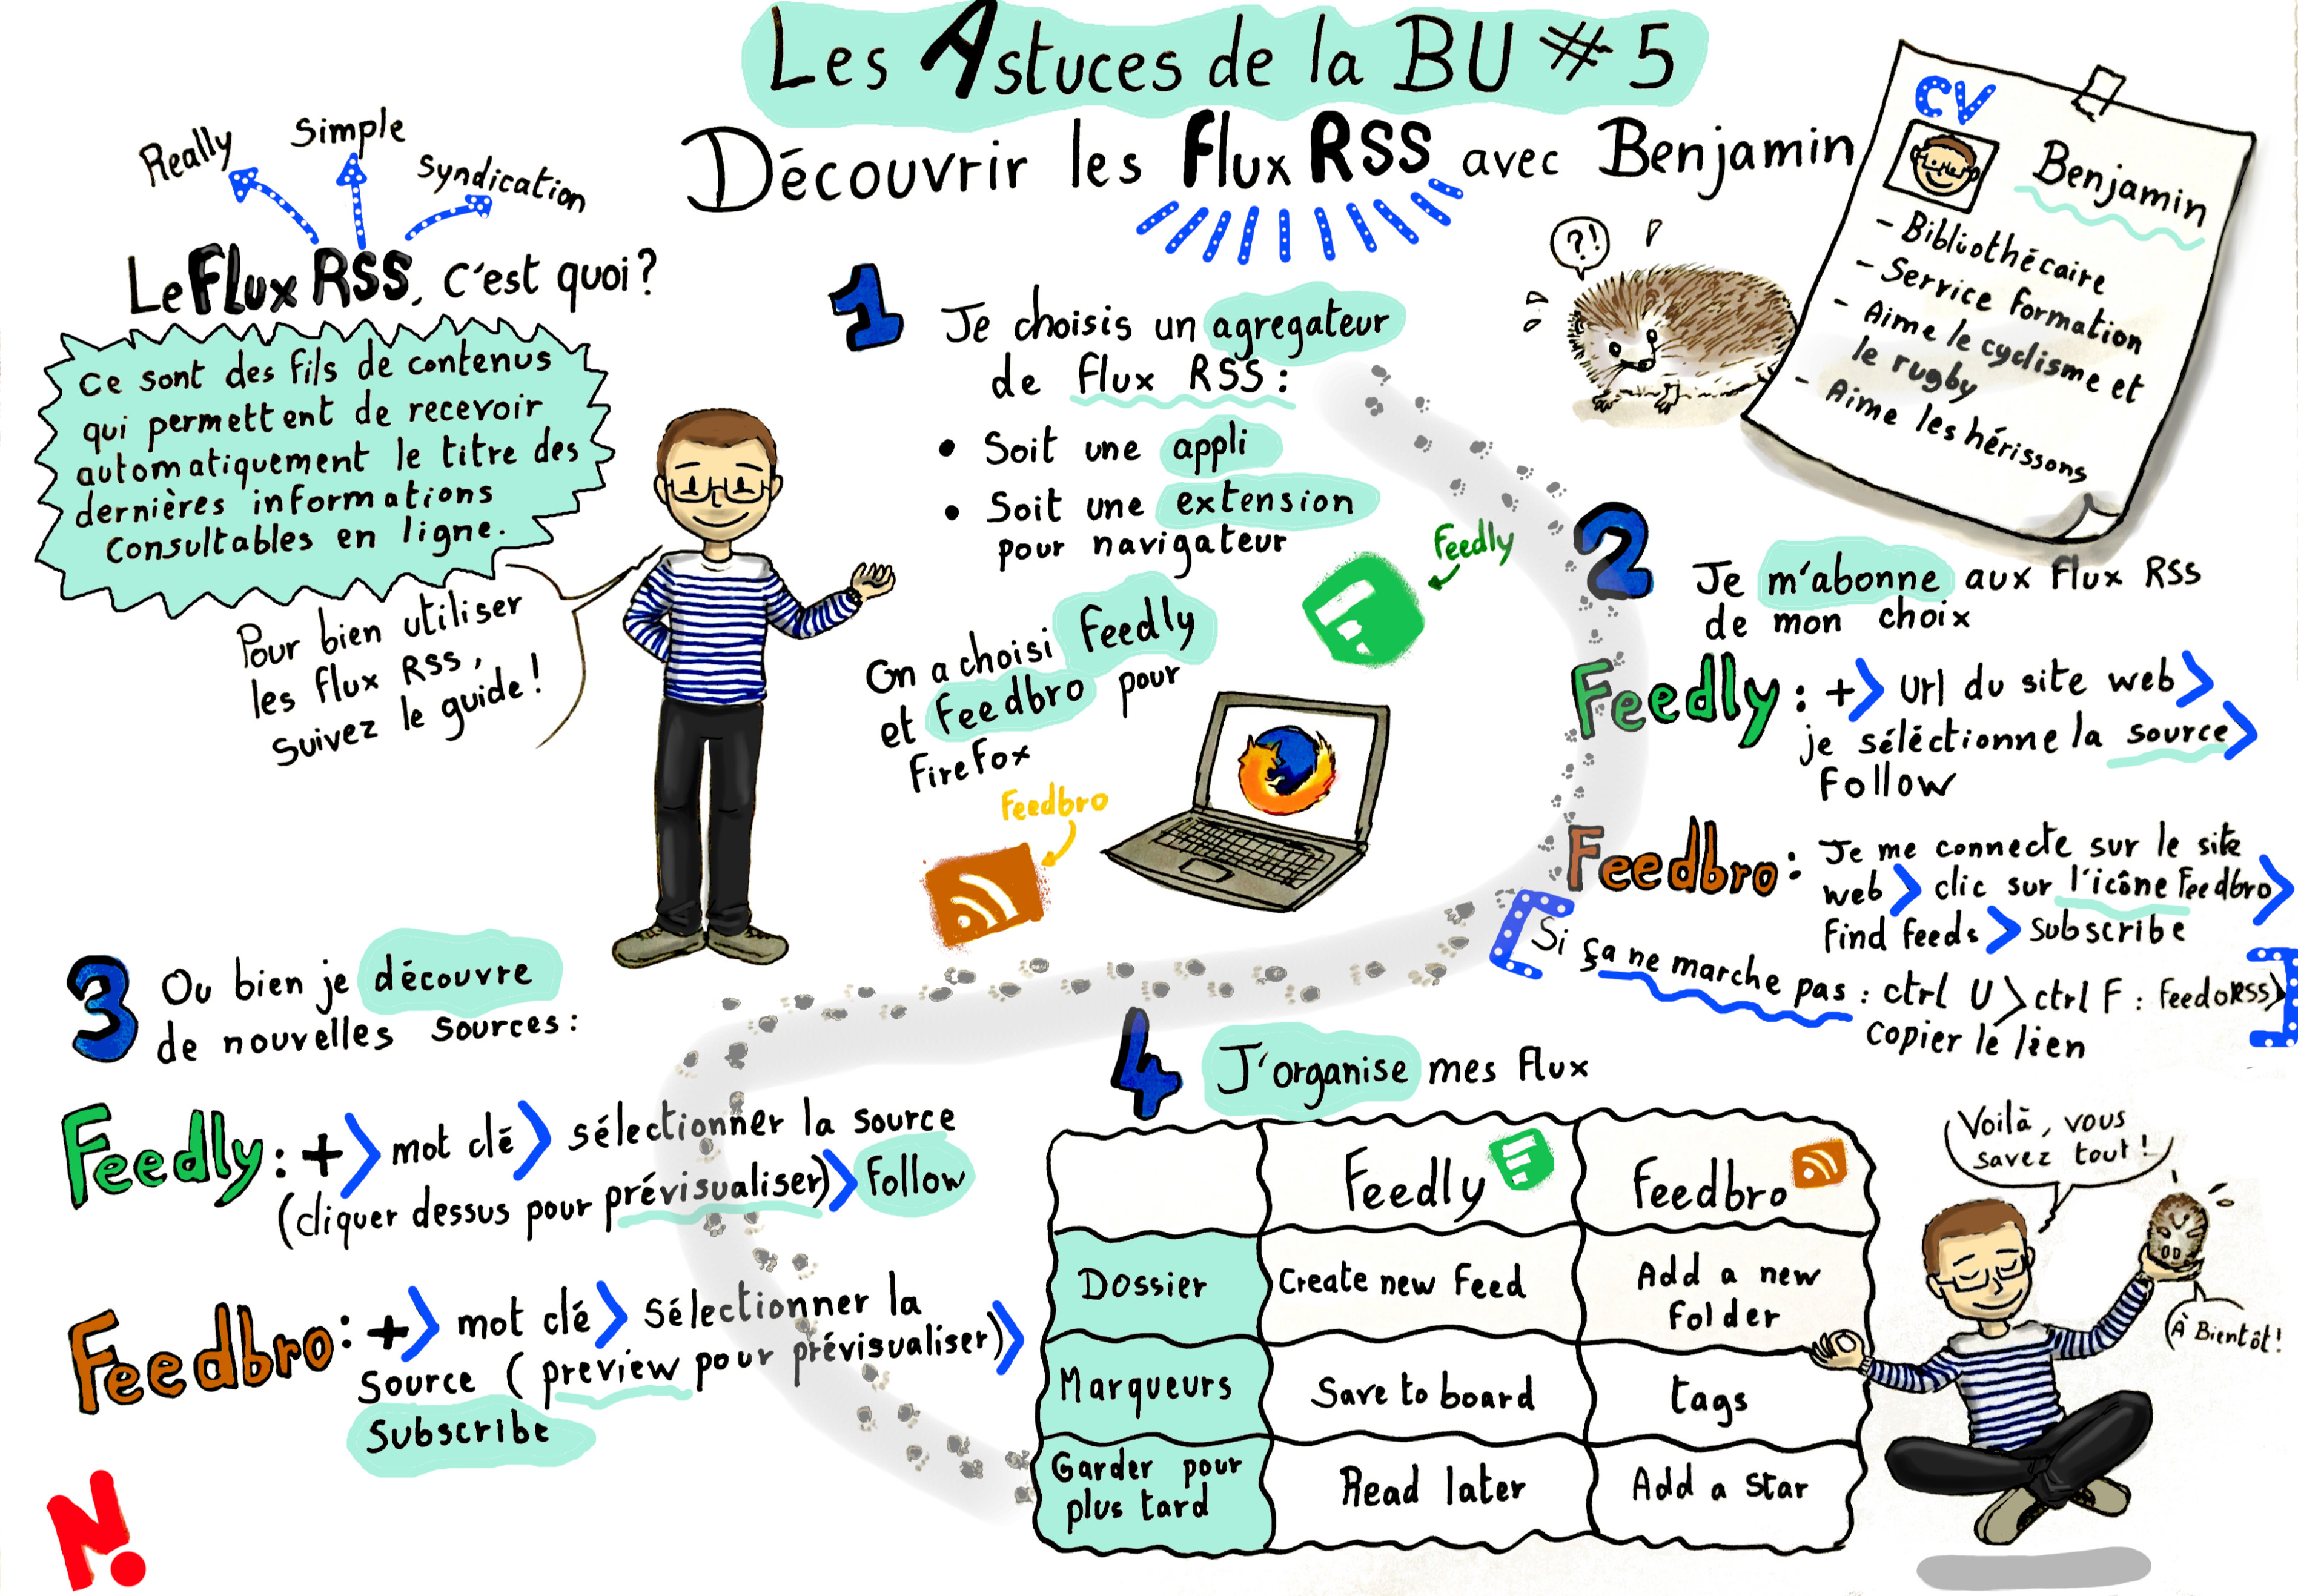 Les Astuces de la BU # 5
Découvrir les Flux RSS avec Benjamin
CV
Benjamin
- Bibliothécaire
- Service formation
- Aime le cyclisme et
le rugby
- Aime les hérissons
?!
Really
Simple
Syndication
Le Flux RSS, c'est quoi ?
Ce sont des fils de contenus
qui permettent de recevoir
automatiquement le titre des
dernières informations
consultables en ligne.
Pour bien utiliser
les flux RSS,
suivez le guide !
1
Je choisis un agregateur
de Flux RSS :
• Soit une appli
• Soit une extension
pour navigateur
Feedly
On a choisi Feedly
et Feedbro pour
FireFox
Feedbro
2
Je m'abonne aux Flux RSS
de mon choix
Feedly : + > Url du site web >
je séléctionne la source >
Follow
Feedbro : Je me connecte sur le site
web > clic sur l'icône Feedbro >
Find feeds > Subscribe
[Si ça ne marche pas : ctrl U > ctrl F : feed o RSS >
copier le lien]
3
Ou bien je découvre
de nouvelles sources :
Feedly : + > mot clé > sélectionner la source
(cliquer dessus pour prévisualiser) > Follow
Feedbro : + > mot clé > Sélectionner la
source (preview pour prévisualiser) >
Subscribe
4
J'organise mes Flux
Feedly
Feedbro
Dossier
Create new Feed
Add a new
Folder
Marqueurs
Save to board
tags
Garder pour
plus tard
Read later
Add a star
Voilà, vous
savez tout !
À Bientôt !
N.